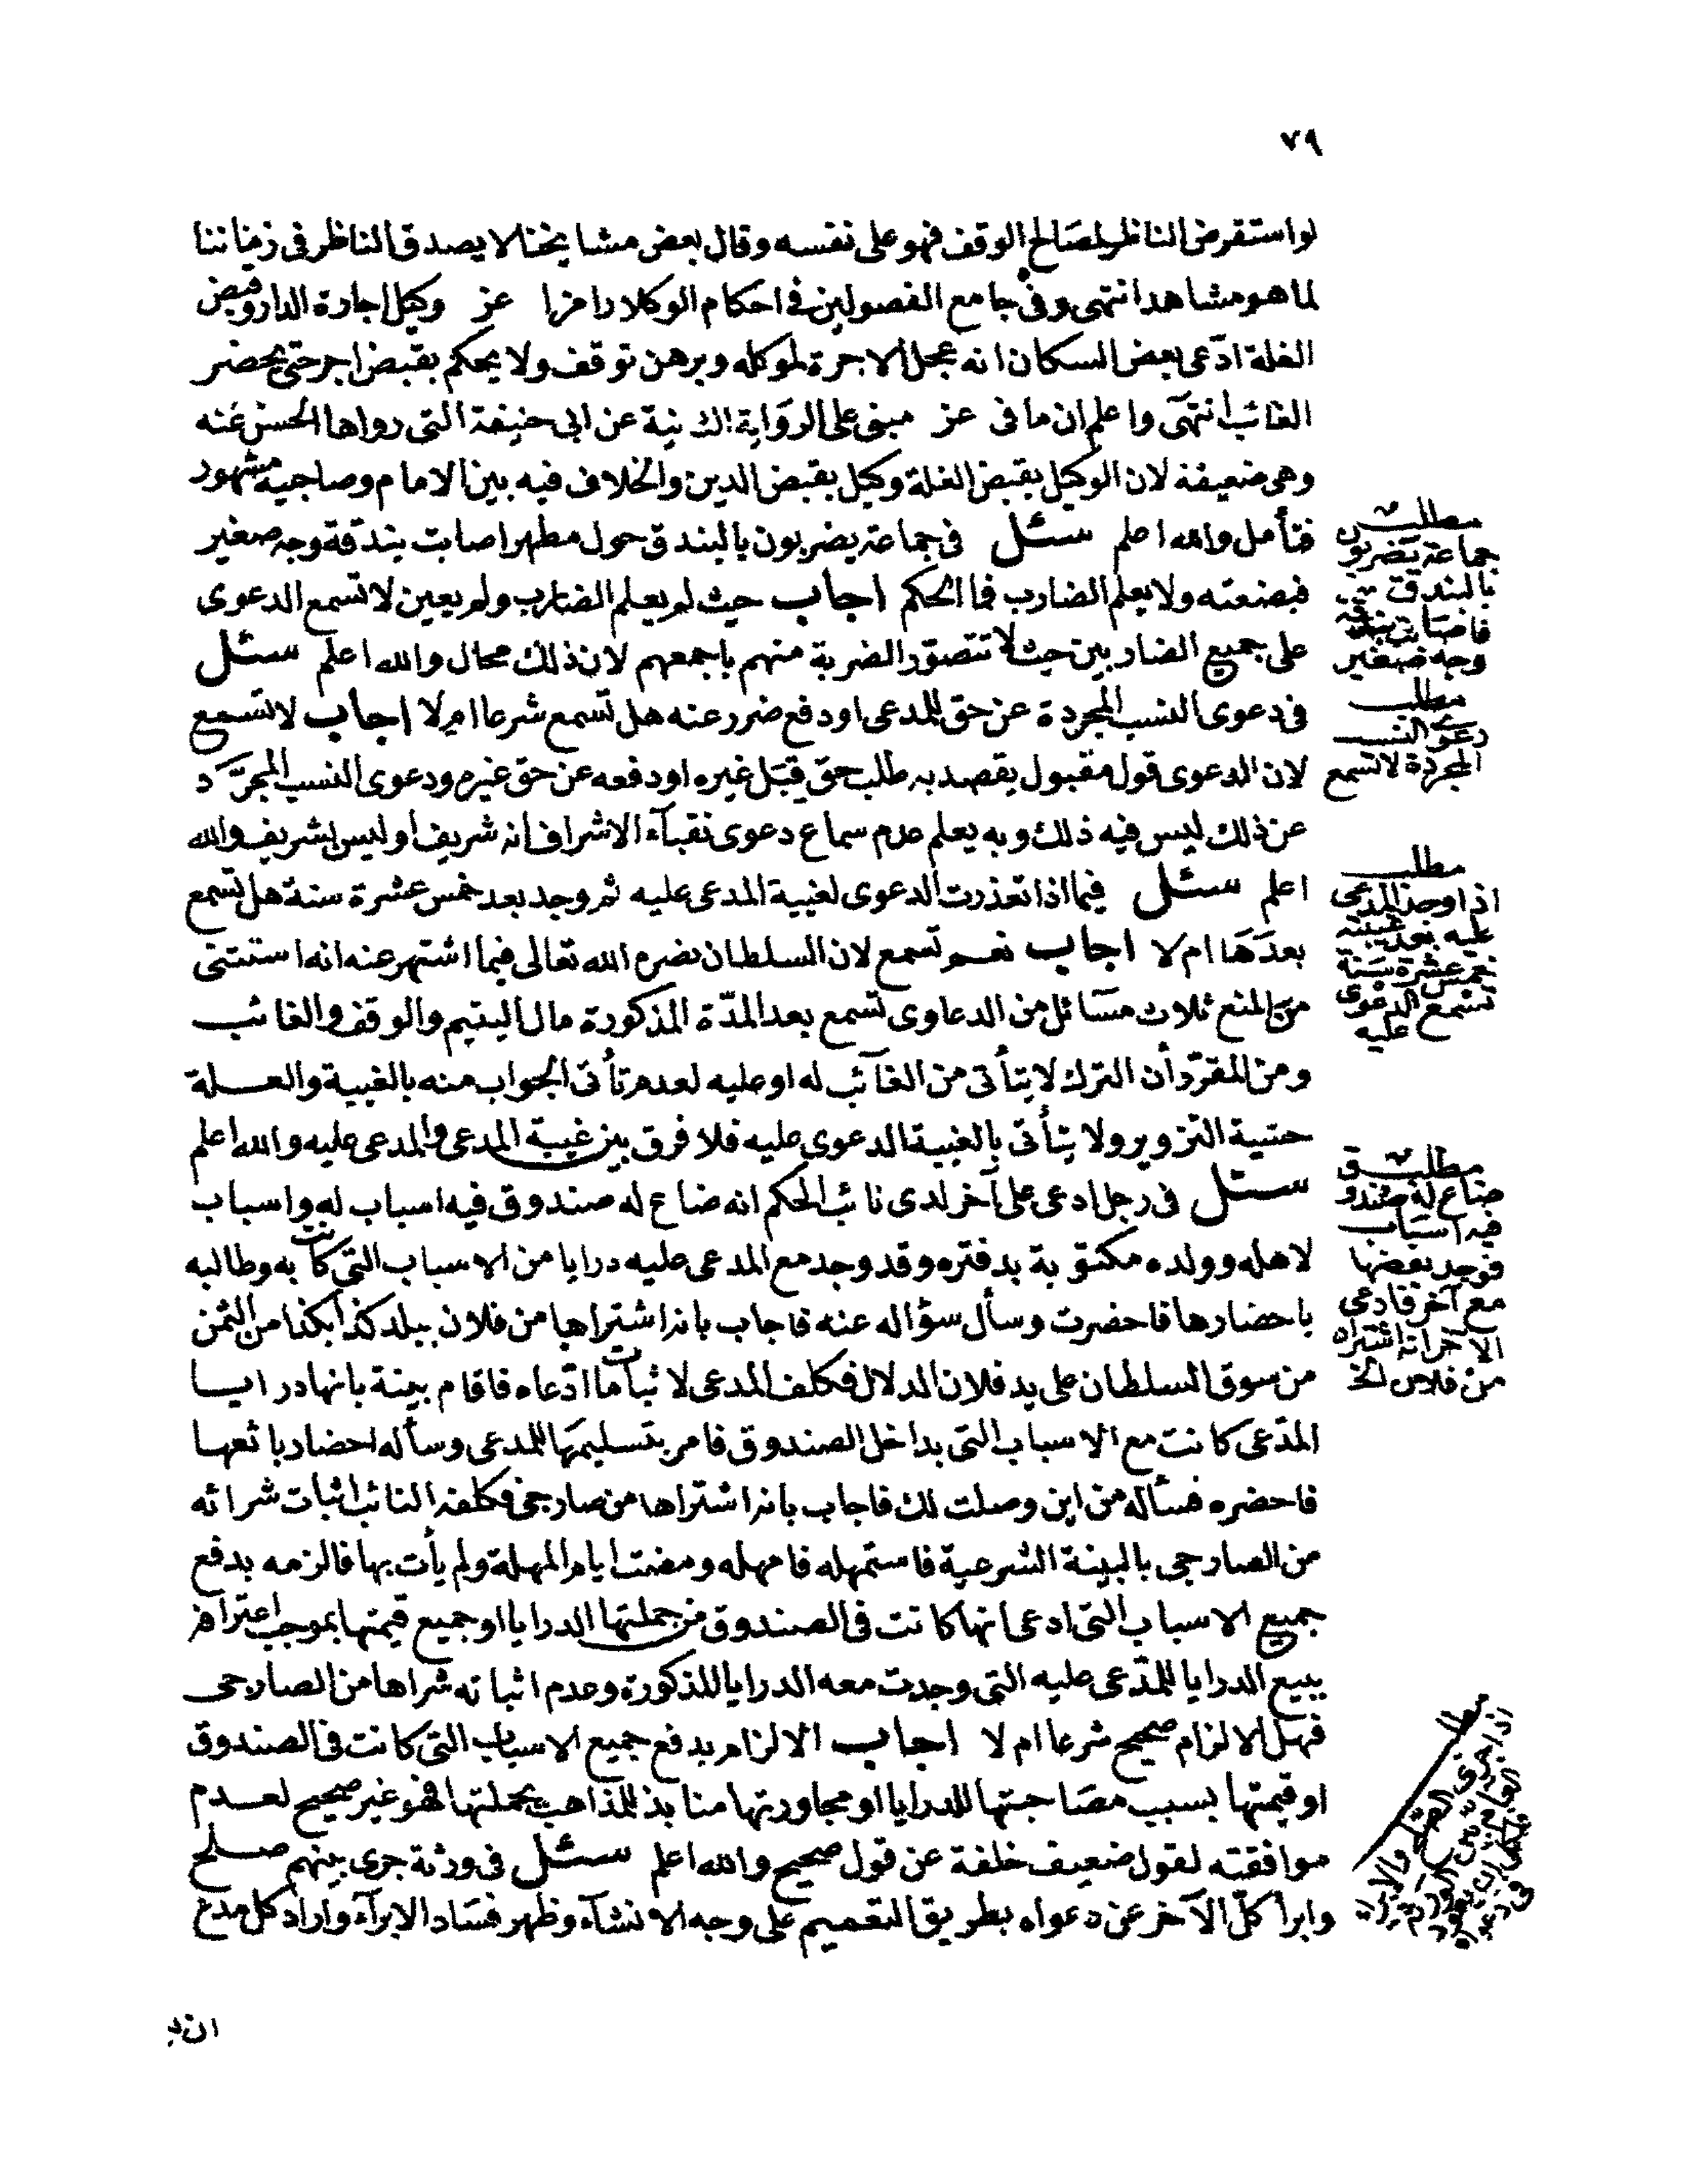 ٧٩
لو استقرض الناظر لمصالح الوقف فهو على نفسه وقال بعض مشايخنا لا يصدق الناظر فى زماننا
لما هو مشاهد انتهى وفى جامع الفصولين فى احكام الوكلا رامزا عز وكيل اجارة الدار وقبض
الغلة ادّعى بعض السكان انه عجل الاجرة لموكله وبرهن توقف ولا يحكم بقبض اجر حتى يحضر
الغائب انتهى واعلم ان ما فى عز مبنى على الرواية الثانية عن ابى حنيفة التى رواها الحسن عنه
وهى ضعيفة لان الوكيل بقبض الغلة وكيل بقبض الدين والخلاف فيه بين الامام وصاحبيه مشهور
فتأمل والله اعلم سئل فى جماعة يضربون بالبندق حول مطهر اصابت بندقة وجه صغير
فبضعته ولا يعلم الضارب فما الحكم اجاب حيث لم يعلم الضارب ولم يعين لا تسمع الدعوى
على جميع الضاربين حيث لا تتصوّر الضربة منهم باجمعهم لان ذلك محال والله اعلم سئل
فى دعوى النسب المجردة عن حق للمدعى او دفع ضرر عنه هل تسمع شرعا ام لا اجاب لا تسمع
لان الدعوى قول مقبول يقصد به طلب حق قبَل غيره او دفعه عن حق غيره ودعوى النسب المجرّد
عن ذلك ليس فيه ذلك وبه يعلم عدم سماع دعوى نقبآء الاشراف انه شريف أو ليس بشريف والله
اعلم سئل فيما اذا تعذرت الدعوى لغيبة المدعى عليه ثم وجد بعد خمس عشرة سنة هل تسمع
بعدها ام لا اجاب نعم تسمع لان السلطان نصره الله تعالى فيما اشتهر عنه انه استثنى
من المنع ثلاث مسائل من الدعاوى تسمع بعد المدّة المذكورة مال اليتيم والوقف والغائب
ومن المقرّر أن الترك لا يتأتى من الغآئب له او عليه لعدم تأتى الجواب منه بالغيبة والعلة
خشية التزوير ولا يتأتى بالغيبة الدعوى عليه فلا فرق بين غيبة المدعى والمدعى عليه والله اعلم
سئل فى رجل ادعى على آخر لدى نائب الحكم انه ضاع له صندوق فيه اسباب له واسباب
لاهله وولده مكتوبة بدفتره وقد وجد مع المدعى عليه درايا من الاسباب التى كانت به وطالبه
باحضارها فاحضرت وسأل سؤاله عنه فاجاب بانه اشتراها من فلان ببلد كذا بكذا من الثمن
من سوق السلطان على يد فلان الدلال فكلف المدعى لاثبات ما ادّعاه فاقام بينة بانها درايا
المدّعى كانت مع الاسباب التى بداخل الصندوق فامر بتسليمها للمدعى وسأله احضار بائعها
فاحضره فسأله من اين وصلت لك فاجاب بانه اشتراها من صارجى فكلفه النائب اثبات شرائه
من الصارجى بالبينة الشرعية فاستمهله فامهله ومضت ايام المهلة ولم يأت بها فالزمه بدفع
جميع الاسباب التى ادعى انها كانت فى الصندوق من جملتها الدرايا او جميع قيمتها بموجب اعترافه
ببيع الدرايا للمدّعى عليه التى وجدت معه الدرايا المذكورة وعدم اثباته شراها من الصارجى
فهل الالزام صحيح شرعا ام لا اجاب الالزام بدفع جميع الاسباب التى كانت فى الصندوق
او قيمتها بسبب مصاحبتها للدرايا او مجاورتها منابذ للمذاهب بجملتها فهو غير صحيح لعدم
موافقته لقول ضعيف خلفة عن قول صحيح والله اعلم سئل فى ورثة جرى بينهم صلح
وابرأ كلّ الآخر عن دعواه بطريق التعميم على وجه الانشآء وظهر فساد الابرآء واراد كل مدع
مطلب
جماعة يضربون
بالبندق
فاصابت بندقة
وجه صغير
مطلب
دعوى النسب
المجردة لا تسمع
مطلب
اذا وجد المدعى
عليه بعد غيبته
خمس عشرة سنة
تسمع الدعوى
عليه
مطلب
ضاع له صندوق
فيه اسباب
فوجد بعضها
مع آخر فادعى
الآخر انه اشتراه
من فلان الخ
مطلب